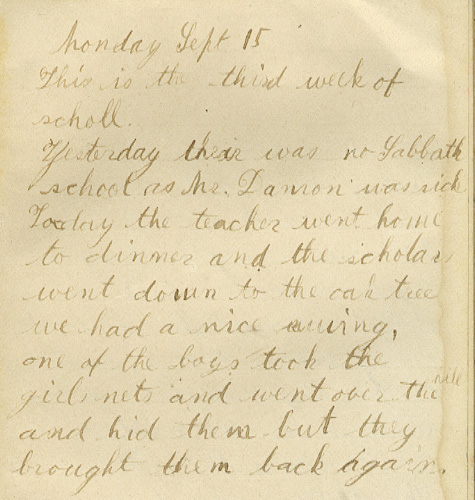 Monday Sept 15
This is the third week of
scholl.
Yesterday their was no Sabbath
school as Mr. Damon was sick
Today the teacher went home
to dinner and the scholars
went down to the oak tree
we had a nice swing,
one of the boys took the
girls nets and went over the hill
and hid them but they
brought them back again.